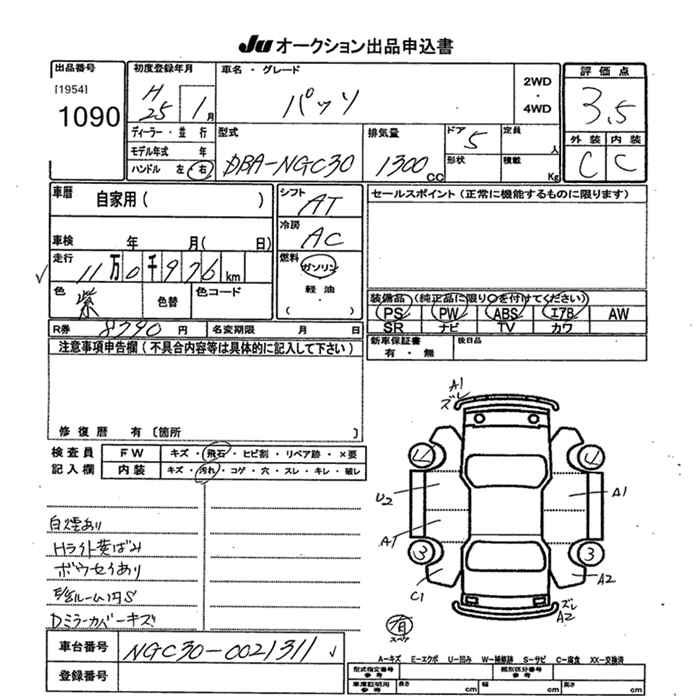 Ju オークション出品申込書
出品番号
[1954]
1090
初度登録年月
H
25 1 月
車名・グレード
パッソ
2WD
・
4WD
評価点
3.5
外装 内装
C C
ディーラー・並行
モデル年式 年
ハンドル 左・右
型式
DBA-NGC30
排気量
1300 CC
ドア 5
形状
定員 人
積載 Kg
車歴
自家用( )
シフト
AT
セールスポイント(正常に機能するものに限ります)
車検 年 月( 日)
冷房
AC
走行
11万0千976 km
燃料
ガソリン
・
軽油
( )
色 紫
色替
色コード
装備品(純正品に限り○を付けてください)
PS PW ABS エアB AW
SR ナビ TV カワ
R券 8790 円
名変期限 月 日
新車保証書
有・無
後日品
注意事項申告欄(不具合内容等は具体的に記入して下さい)
修復歴 有〔箇所 〕
検査員
記入欄
FW
キズ・飛石・ヒビ割・リペア跡・×要
内装
キズ・汚れ・コゲ・穴・スレ・キレ・破レ
白煙あり
Hライト黄ばみ
Dミラーカバーキズ
A1
ズレ
4 4
U2 A1
A1
3 3
C1 A2
ズレ
A2
有
スペア
車台番号
NGC30-0021311
登録番号
A―キズ E―エクボ U―凹み W―補修跡 S―サビ C―腐食 XX―交換済
型式指定番号
参考
類別区分番号
車庫証明用
参考
長さ cm
幅 cm
高さ cm